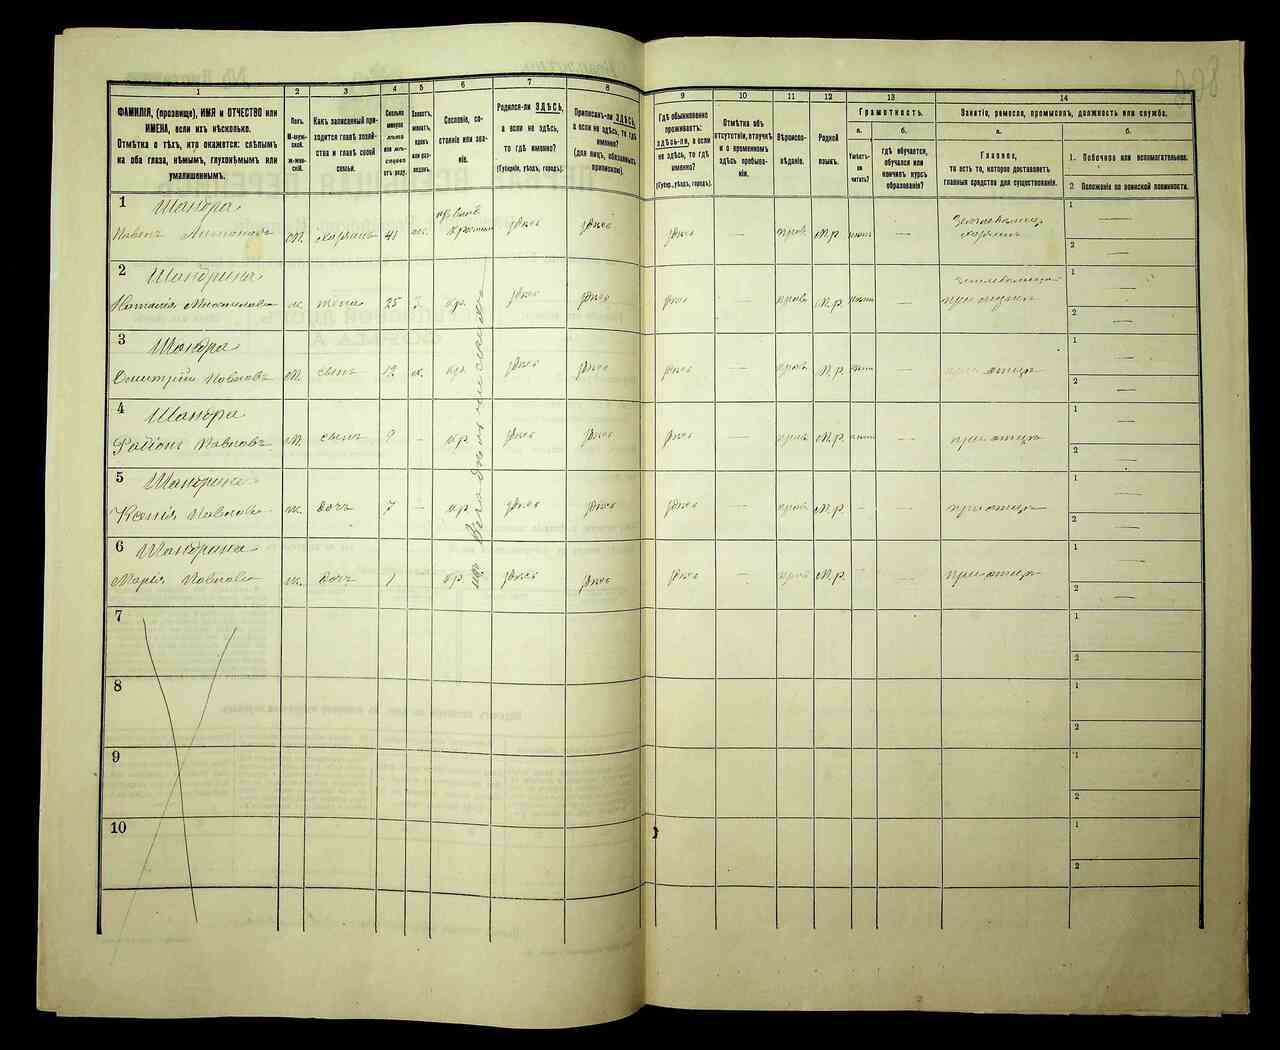 1
ФАМИЛІЯ, (прозвище), ИМЯ и ОТЧЕСТВО или
ИМЕНА, если ихъ нѣсколько.
Отмѣтка о тѣхъ, кто окажется: слѣпымъ
на оба глаза, нѣмымъ, глухонѣмымъ или
умалишеннымъ.
2
Полъ.
М-муж-
ской.
Ж-жен-
скій.
3
Какъ записанный при-
ходится главѣ хозяй-
ства и главѣ своей
семьи.
4
Сколько
минуло
лѣтъ
или мѣ-
сяцевъ
отъ роду.
5
Холостъ,
женатъ,
вдовъ
или раз-
веденъ.
6
Сословіе, со-
стояніе или зва-
ніе.
7
Родился-ли ЗДѢСЬ,
а если не здѣсь,
то гдѣ именно?
(Губернія, уѣздъ, городъ).
8
Приписанъ-ли ЗДѢСЬ,
а если не здѣсь, то гдѣ
именно?
(для лицъ, обязанныхъ
припиской).
9
Гдѣ обыкновенно
проживаетъ:
здѣсь-ли, а если
не здѣсь, то гдѣ
именно?
(Губер., уѣздъ, городъ).
10
Отмѣтка объ
отсутствіи, отлучкѣ
и о временномъ
здѣсь пребыва-
ніи.
11
Вѣроиспо-
вѣданіе.
12
Родной
языкъ.
13
Грамотность.
а.
Умѣетъ-
ли
читать?
б.
гдѣ обучается,
обучался или
кончилъ курсъ
образованія?
14
Занятіе, ремесло, промыселъ, должность или служба.
а.
Главное,
то есть то, которое доставляетъ
главныя средства для существованія.
б.
1. Побочное или вспомогательное.
2 Положеніе по воинской повинности.
1
Шандра
Павелъ Антоновъ М. хозяинъ 41 ж. здѣсь здѣсь здѣсь — прав. М.р. —
хозяинъ
1 —
2 —
2
Шандрина
Наталія ж. жена 25 кр. здѣсь здѣсь здѣсь — прав. М.р. —
1 —
2 —
3
Шандра
Дмитрій Павловъ М. сынъ 12 х. кр. здѣсь здѣсь здѣсь — прав. М.р. — при отцѣ
1 —
2 —
4
Шандра
Павловъ М. сынъ 9 — кр. здѣсь здѣсь здѣсь — прав. М.р. — при отцѣ
1 —
2 —
5
Шандрина
Ксенія Павлова ж. дочь 7 — кр. здѣсь здѣсь здѣсь — прав. М.р. - — при отцѣ
1 —
2 —
6
Шандрина
Марія Павлова ж. дочь 1 кр. здѣсь здѣсь здѣсь — прав. М.р. - — при отцѣ
1 —
2 —
7
1
2
8
1
2
9
1
2
10
1
2